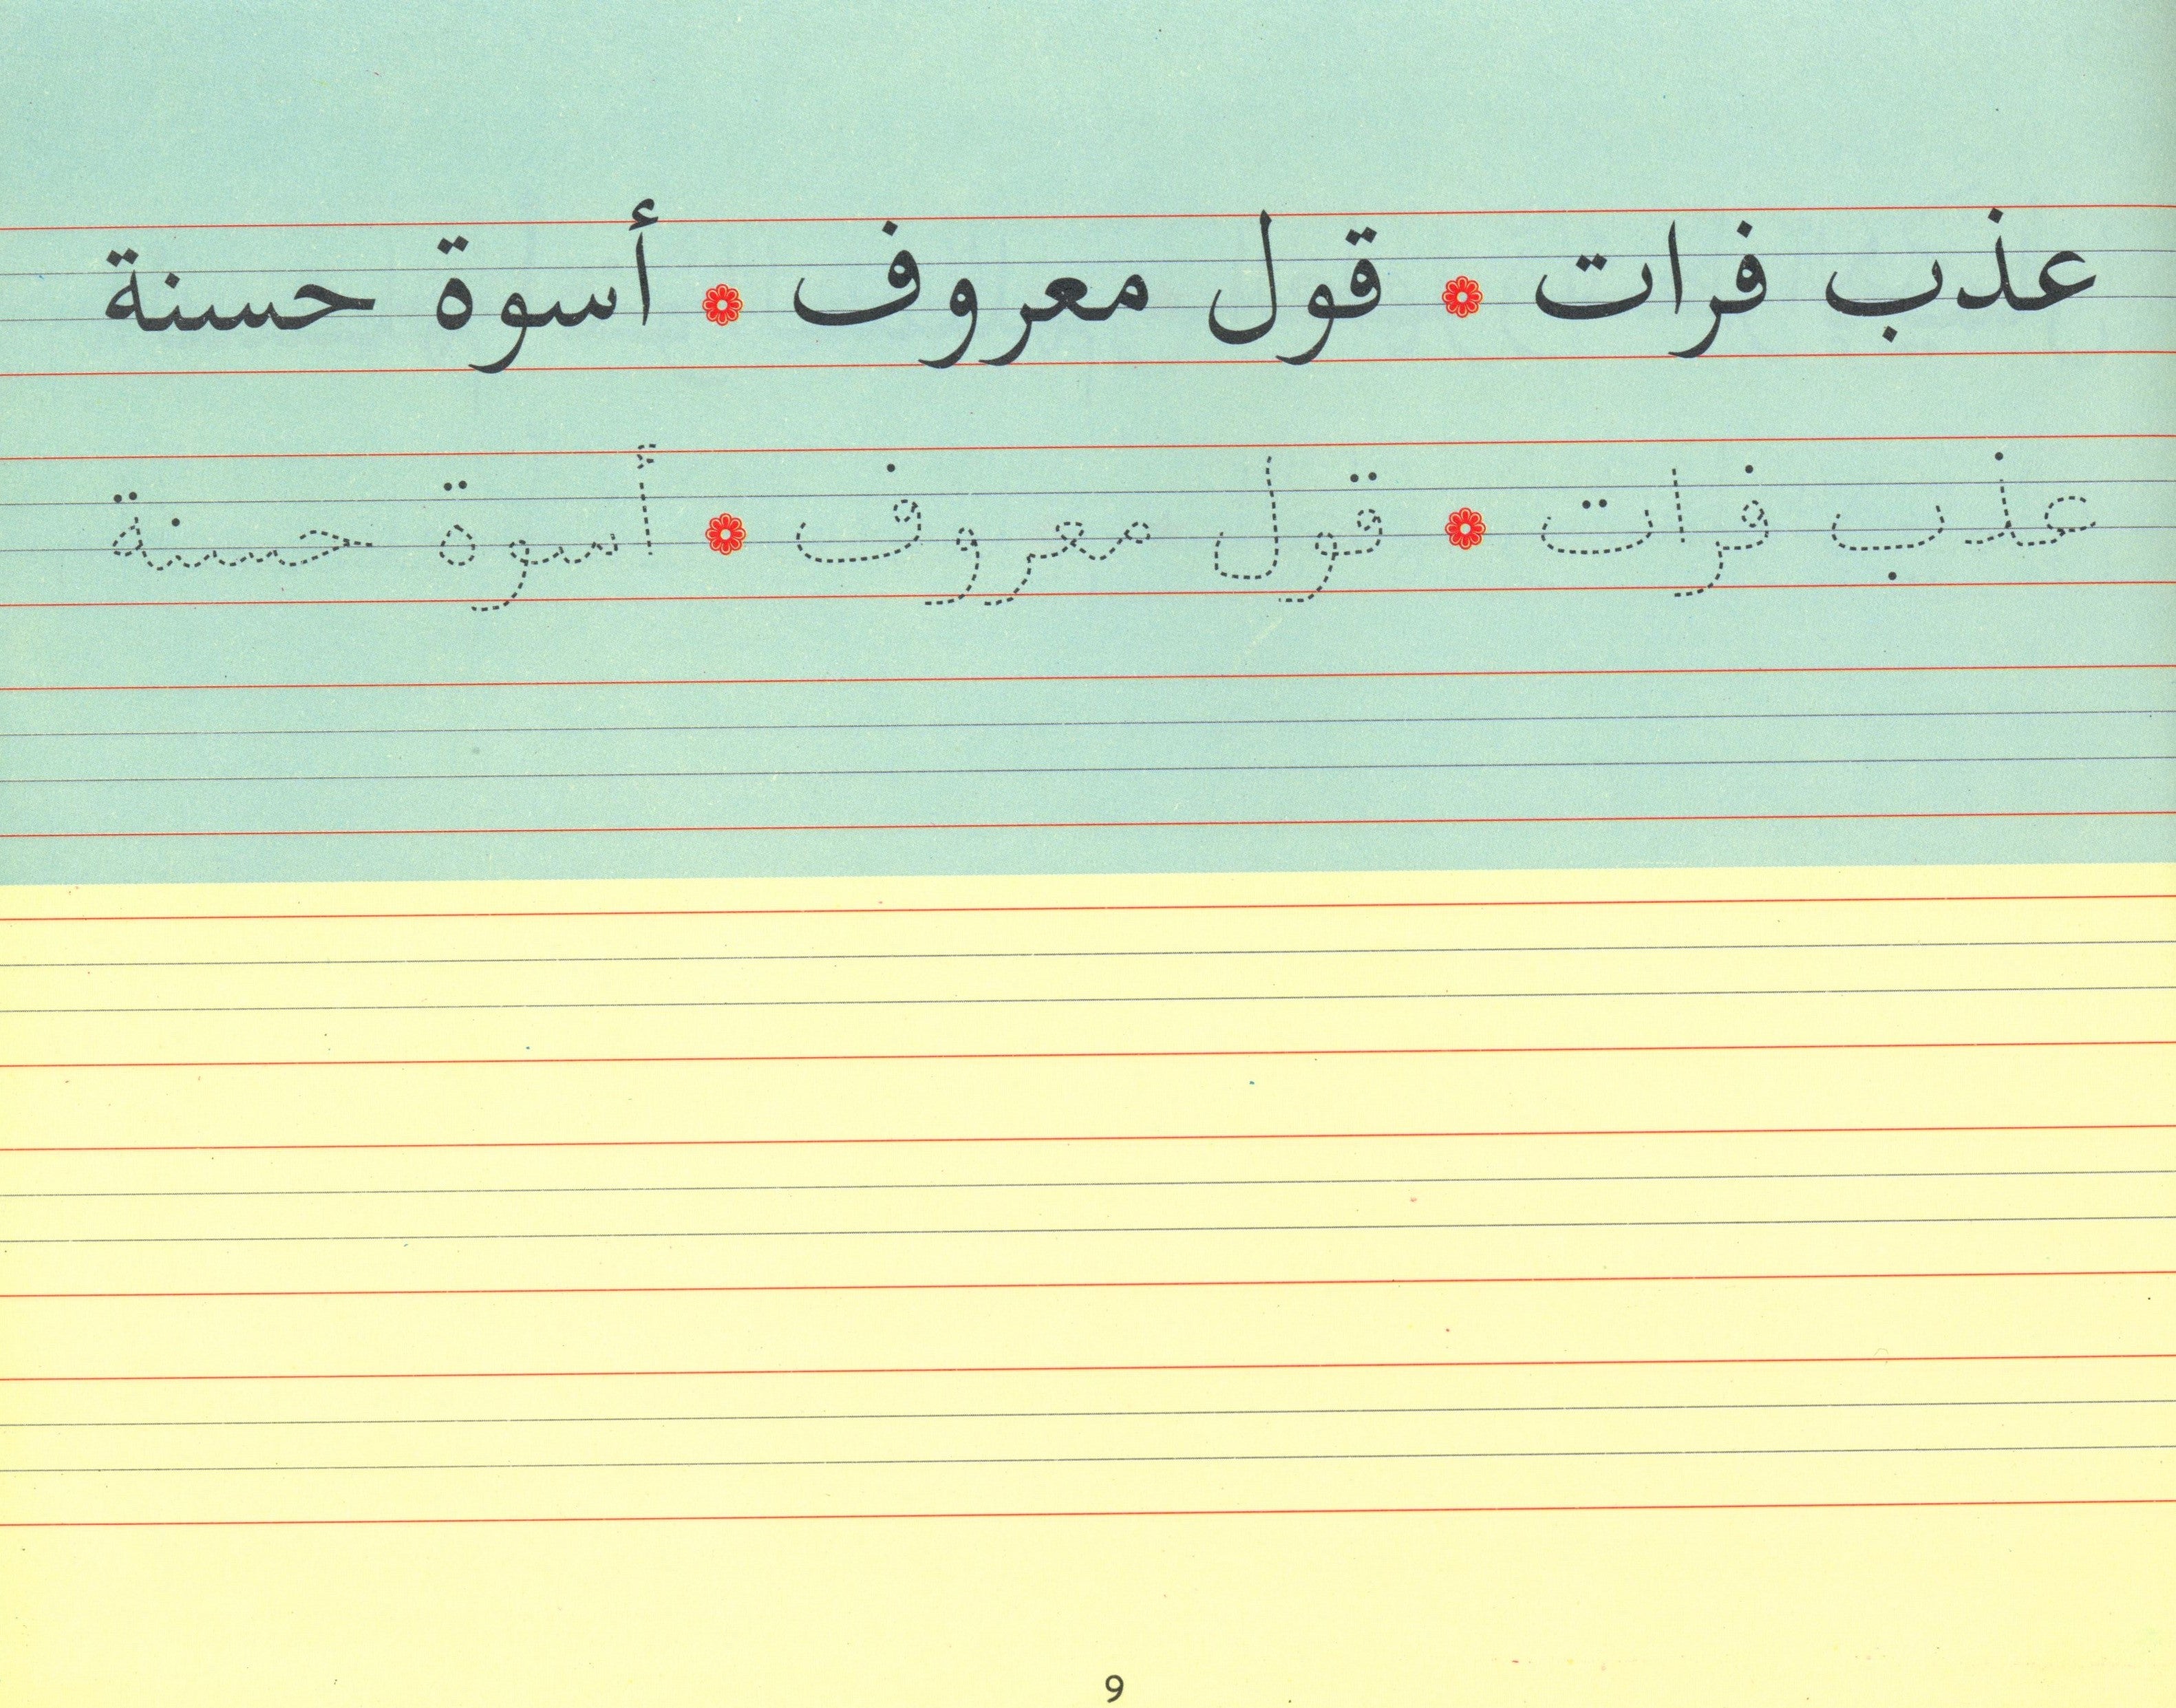 عذب فرات ❁ قول معروف ❁ أسوة حسنة
عذب فرات ❁ قول معروف ❁ أسوة حسنة
9